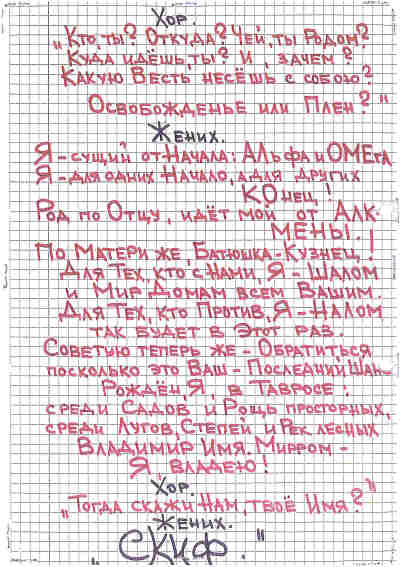 Хор.
„Кто, ты? Откуда? Чей, ты Родом?
Куда идёшь, ты? И, зачем?
Какую Весть несёшь с собою?
Освобожденье или Плен?"
Жених.
Я - сущий от Начала: АЛьфа и ОМЕга
Я - для одних Начало, а для других
КОнец!
Род по Отцу, идёт мой от АЛК-
МЕНЫ.!
По, Матери же, Батюшка - Кузнец!
Для Тех, кто с Нами, Я - Шалом
и Мир Домам всем Вашим.
Для Тех, кто Против, Я - Налом
так будет в Этот раз.
Советую теперь же - Обратиться
поскольку это Ваш - Последний Шан-
Рождён, Я, в Тавросе:
среди Садов и Рощь просторных,
среди Лугов, Степей и Рек лесных
Владимир Имя. Мирром -
Я, владею!
Хор.
„Тогда скажи Нам, твоё Имя?"
Жених.
„Скиф."